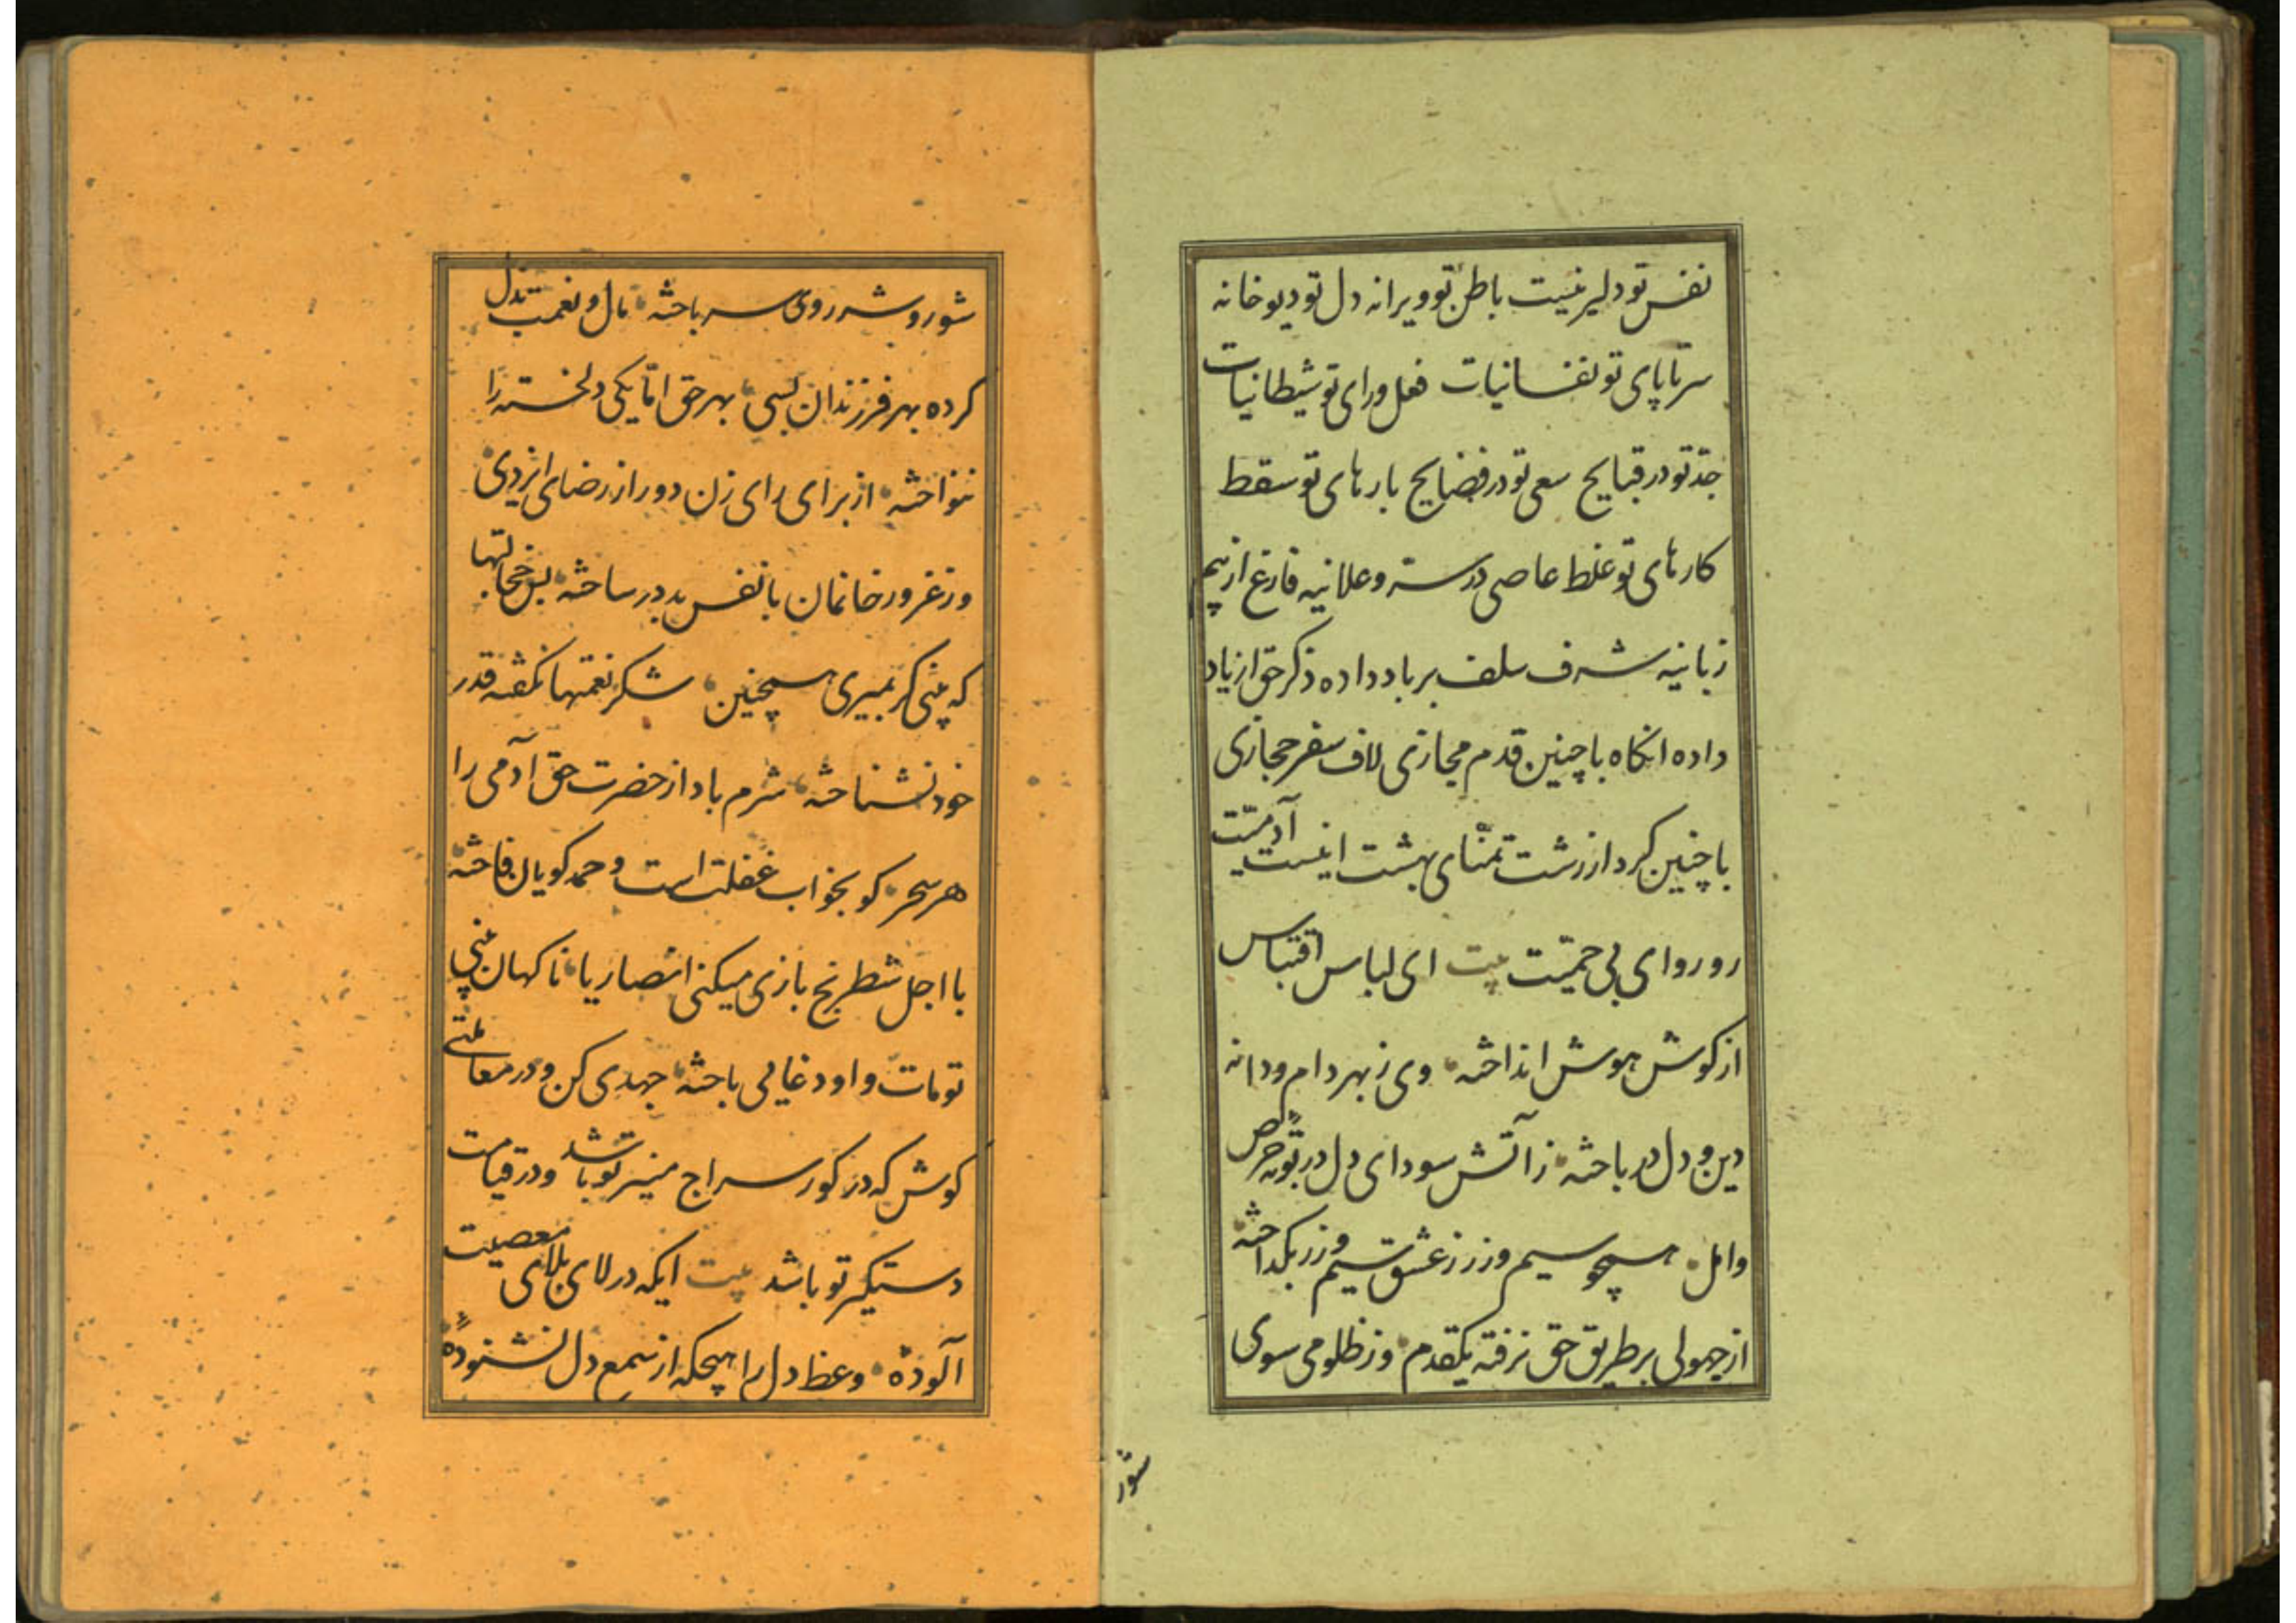 نفس تو دلیر نیست باطن تو ویرانه دل تو دیوخانه
سرتاپای تو نفسانیات فعل و رای تو شیطانیات
جد تو در قبایح سعی تو در فضایح بارهای تو سقط
کارهای تو غلط عاصی در سر و علانیه فارغ از بیم
زبانیه شرف سلف بر باد داده ذکر حق از یاد
داده انکاه با چنین قدم مجازی لاف سفر حجازی
با چنین کردار زشت تمنای بهشت اینست آدمیت
رو رو ای بی حمیت بیت ای لباس اقتباس
از کوش هوش انداخته وی ز بهر دام و دانه
دین و دل در باخته ز آتش سودای دل در بوته حرص
و امل همچو سیم و زر ز عشق سیم و زر بکداخته
از جهولی بر طریق حق نرفته یکقدم وز ظلومی سوی
شور
شور و شر روی سر باخته مال و نعمت بذل
کرده بهر فرزندان بسی بهر حق اما یکی دلخسته را
ننواخته از برای رای زن دور از رضای ایزدی
وز غرور خانمان با نفس بد در ساخته بس خجالتها
که بینی کر بمیری همچنین شکر نعمتها نکفته قدر
خود نشناخته شرم باد از حضرت حق آدمی را
هر سحر کو بخواب غفلت است و حمد کویان فاخته
با اجل شطرنج بازی میکنی انصاریا ناکهان بینی
تو مات و او دغایی باخته جهدی کن و در معاملتی
کوش که در کور سراج منیر تو باشد و در قیامت
دستکیر تو باشد بیت ایکه در لای بلای معصیت
آلودهٔ وعظ دل را هیچکه از سمع دل نشنودهٔ